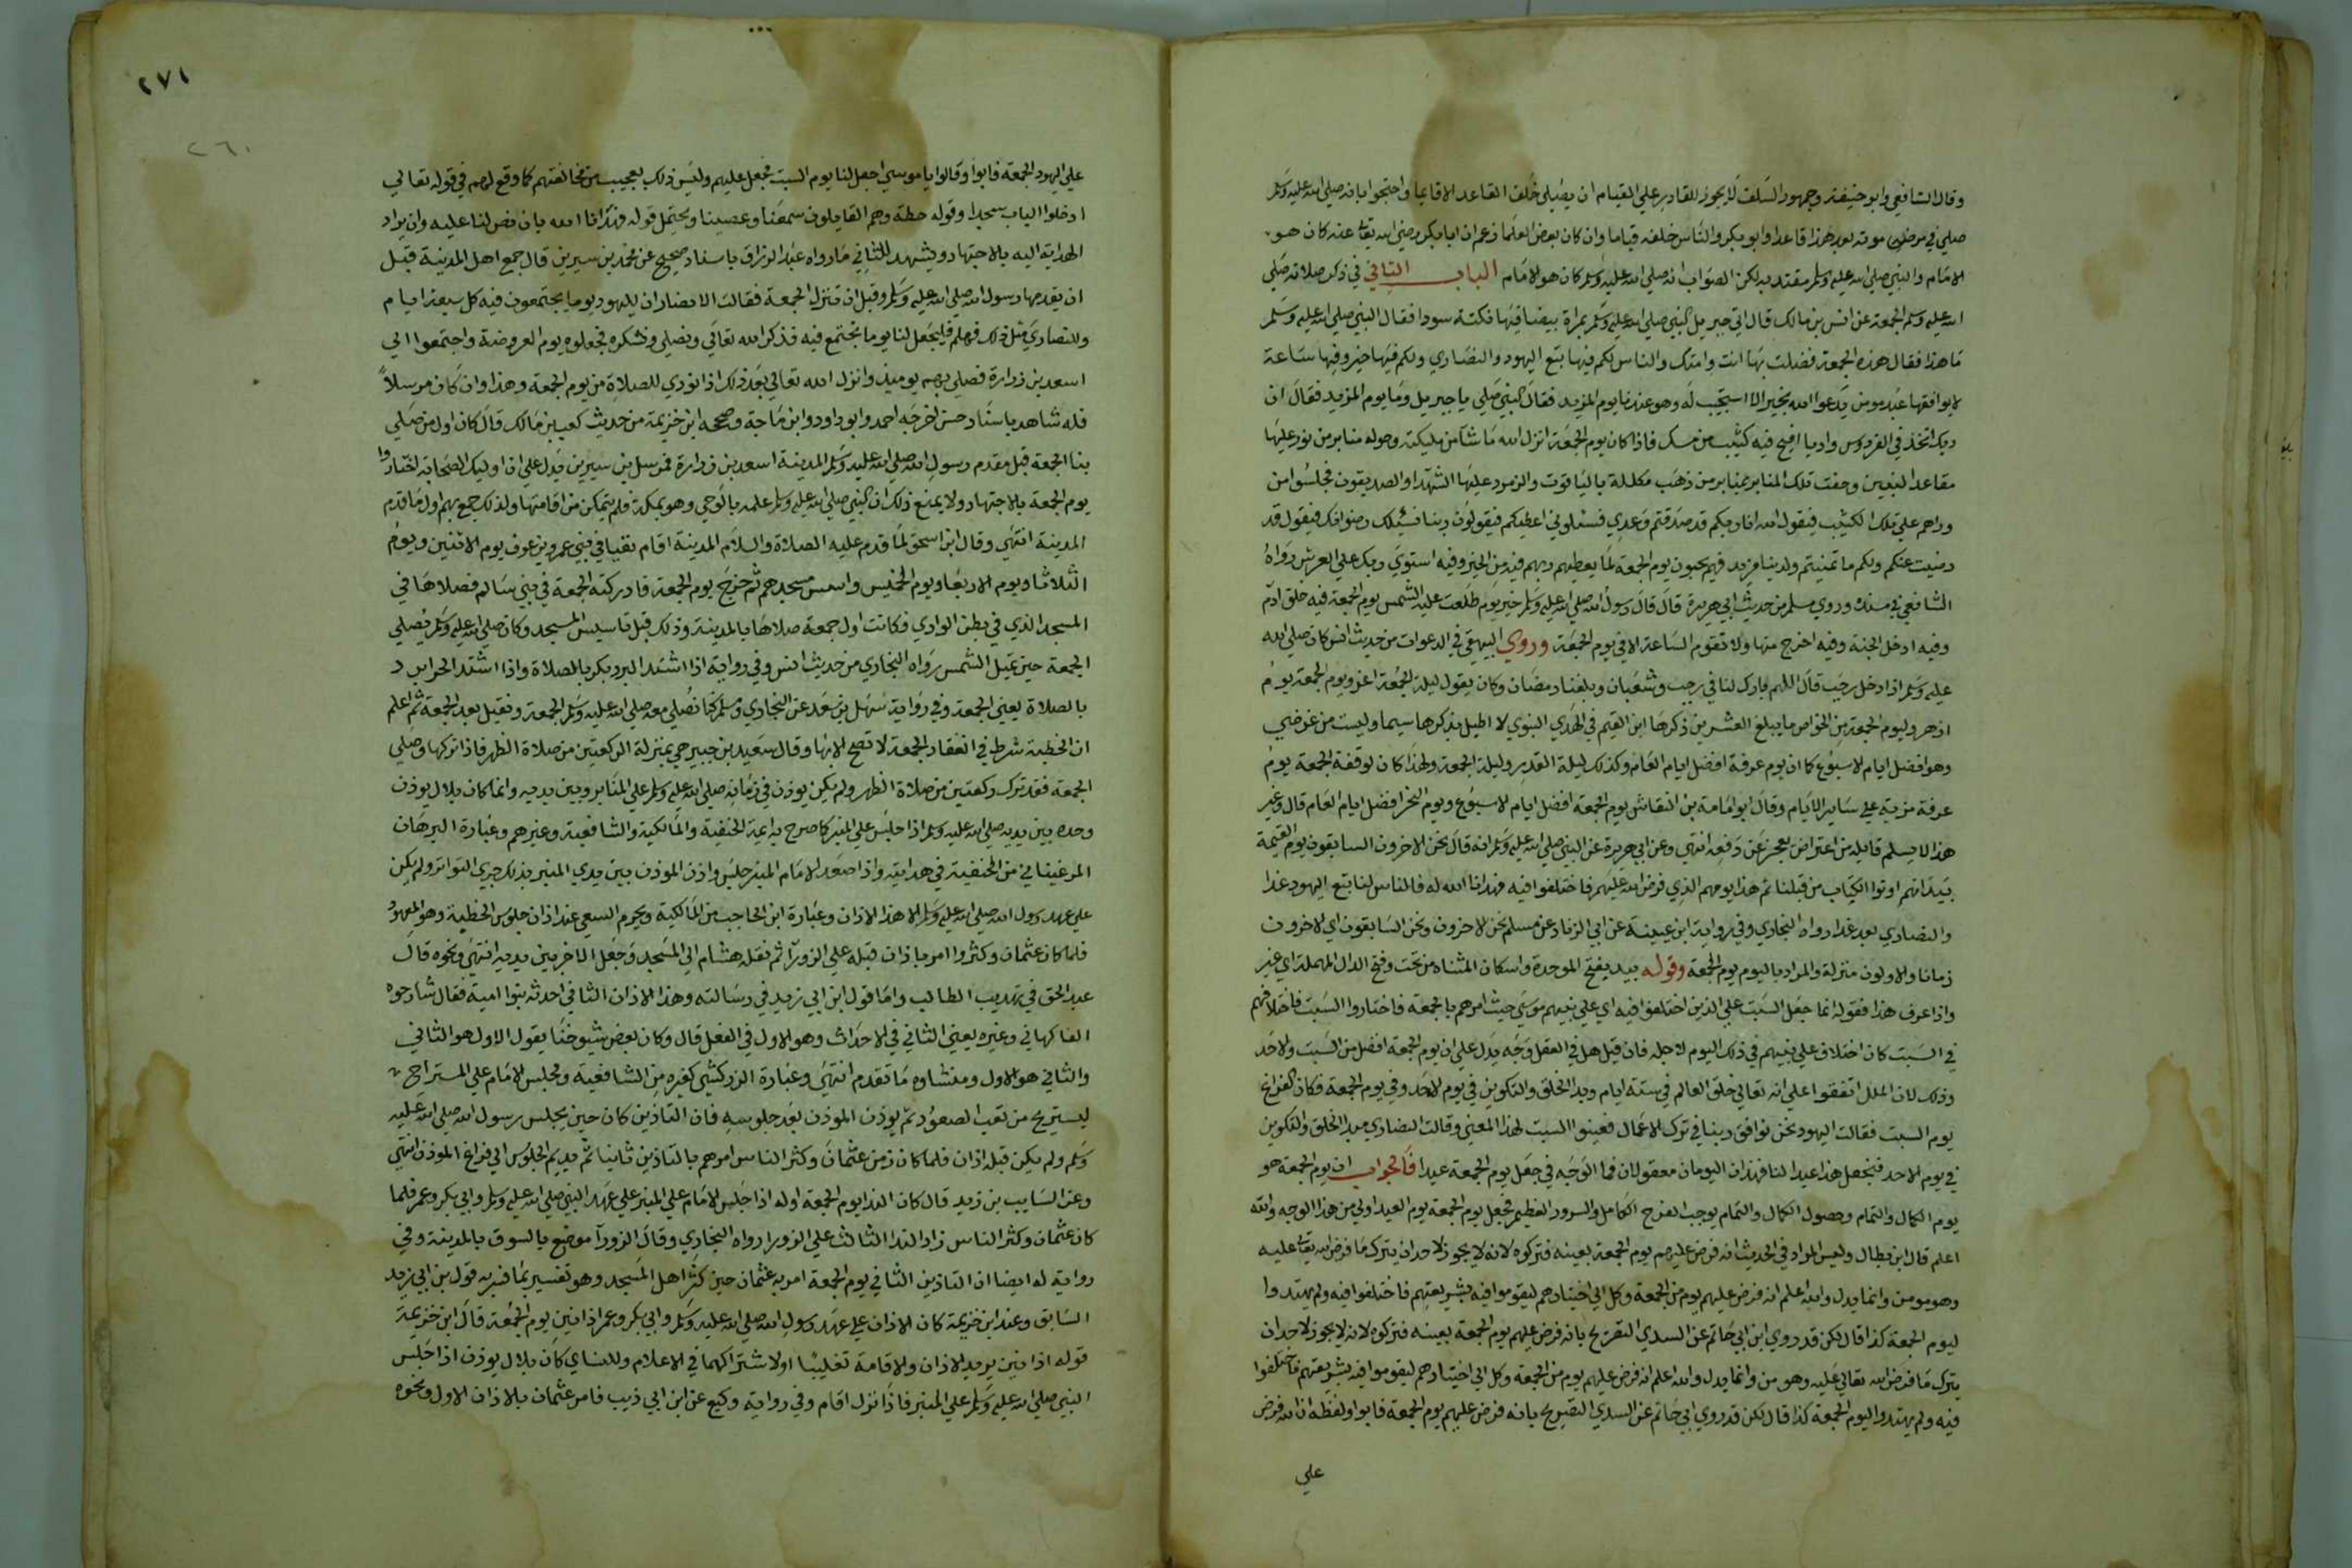 وقال الشافعي وابو حنيفة وجمهور السلف لا يجوز للقادر علي القيام ان يصلي خلف القاعد الا قايما واحتجوا بانه صلي الله عليه وسلم
صلي في مرض موته بعد هذا قاعدا وابو بكر والناس خلفه قياما وان كان بعض العلما زعم ان ابا بكر رضي الله تعالى عنه كان هو
الامام والنبي صلي الله عليه وسلم مقتد به لكن الصواب انه صلي الله عليه وسلم كان هو الامام الباب الثاني في ذكر صلاته صلي
الله عليه وسلم الجمعة عن انس بن مالك قال اتي جبريل النبي صلي الله عليه وسلم بمراة بيضا فيها نكتة سودا فقال النبي صلي الله عليه وسلم
ما هذا فقال هذه الجمعة فضلت بها انت وامتك والناس لكم فيها تبع اليهود والنصاري ولكم فيها خير وفيها ساعة
لا يوافقها عبد مومن يدعوا الله بخير الا استجيب له وهو عندنا يوم المزيد فقال النبي صلي يا جبريل وما يوم المزيد فقال ان
ربك اتخذ في الفردوس واديا افيح فيه كثيب من مسك فاذا كان يوم الجمعة انزل الله ما شا من مليكته وحوله منابر من نور عليها
مقاعد النبيين وحفت تلك المنابر بمنابر من ذهب مكللة بالياقوت والزمرد عليها الشهدا والصديقون فجلسوا من
وراهم علي تلك الكثيب فيقول الله انا ربكم قد صدقتم وعدي فسلوني اعطيكم فيقولون ربنا نسئلك رضوانك فيقول قد
رضيت عنكم ولكم ما تمنيتم ولدينا مزيد فهم يحبون يوم الجمعة لما يعطيهم ربهم فيه من الخير وفيه استوي ربك علي العرش رواه
الشافعي في مسنده وروي مسلم من حديث ابي هريرة قال قال رسول الله صلي الله عليه وسلم خير يوم طلعت عليه الشمس يوم الجمعة فيه خلق ادم
وفيه ادخل الجنة وفيه اخرج منها ولا تقوم الساعة الا في يوم الجمعة وروي البيهقي في الدعوات من حديث انس كان صلي الله
عليه وسلم اذا دخل رجب قال اللهم بارك لنا في رجب وشعبان وبلغنا رمضان وكان يقول ليلة الجمعة اغر ويوم الجمعة يوم
ازهر وليوم الجمعة من الخواص ما يبلغ العشرين ذكرها ابن القيم في الهدي النبوي لا اطيل بذكرها سيما وليست من غرضي
وهو افضل ايام الاسبوع كما ان يوم عرفة افضل ايام العام وكذلك ليلة القدر وليلة الجمعة ولهذا كان لوقفة الجمعة يوم
عرفة مزية علي ساير الايام وقال ابو امامة بن النقاش يوم الجمعة افضل ايام الاسبوع ويوم النحر افضل ايام العام قال وغير
هذا لا يسلم قايله من اعتراض يعجز عن دفعه انتهي وعن ابي هريرة عن النبي صلي الله عليه وسلم انه قال نحن الاخرون السابقون يوم القيمة
بيد انهم اوتوا الكتاب من قبلنا ثم هذا يومهم الذي فرض الله عليهم فاختلفوا فيه فهدانا الله له فالناس لنا تبع اليهود غدا
والنصاري بعد غدا رواه البخاري وفي رواية ابن عيينة عن ابي الزناد عن مسلم نحن الاخرون ونحن السابقون اي الاخرون
زمانا والاولون منزلة والمراد باليوم يوم الجمعة وقوله بيد بفتح الموحدة واسكان المثناه من تحت وفتح الدال المهملة اي غير
واذا عرف هذا فقوله انما جعل السبت علي الذين اختلفوا فيه اي علي نبيهم موسي حيث امرهم بالجمعة فاختاروا السبت فاختلافهم
في السبت كان اختلاف علي نبيهم في ذلك اليوم لاجله فان قيل هل في العقل وجه يدل علي ان يوم الجمعة افضل من السبت والاحد
وذلك لان الملل اتفقوا علي انه تعالي خلق العالم في ستة ايام وبدا الخلق والتكوين في يوم الاحد وفي يوم الجمعة فكان الفراغ
يوم السبت فقالت اليهود نحن نوافق ربنا في ترك الاعمال فعينوا السبت لهذا المعني وقالت النصاري مبدا الخلق والتكوين
في يوم الاحد فنجعل هذا عيدا لنا فهذان اليومان معقولان فما الوجه في جعل يوم الجمعة عيدا فالجواب ان يوم الجمعة هو
يوم الكمال والتمام وحصول الكمال والتمام يوجب الفرح الكامل والسرور العظيم فجعل يوم الجمعة يوم العيد اولي من هذا الوجه والله
اعلم قال ابن بطال وليس المراد في الحديث انه فرض عليهم يوم الجمعة بعينه فتركوه لانه لا يجوز لاحد ان يترك ما فرض الله تعالى عليه
وهو مومن وانما يدل والله اعلم انه فرض عليهم يوم من الجمعة وكل الي اختيارهم ليقوموا فيه بشريعتهم فاختلفوا فيه ولم يهتدوا
ليوم الجمعة كذا قال لكن قد روي ابن ابي حاتم عن السدي التصريح بانه فرض عليهم يوم الجمعة بعينه فتركوه لانه لا يجوز لاحد ان
يترك ما فرض الله تعالي عليه وهو من وانما يدل والله اعلم انه فرض عليهم يوم من الجمعة وكل الي اختيارهم ليقوموا فيه بشريعتهم فاختلفوا
فيه ولم يهتدوا ليوم الجمعة كذا قال لكن قد روي ابي حاتم عن السدي التصريح بانه فرض عليهم يوم الجمعة فابوا ولفظه ان الله فرض
علي
٢٧١
٢٦٠
علي اليهود الجمعة فابوا وقالوا يا موسي اجعل لنا يوم السبت فجعل عليهم وليس ذلك بعجيب من مخالفتهم كما وقع لهم في قوله تعالي
ادخلوا الباب سجدا وقوله حطة وهم القايلون سمعنا وعصينا ويحتمل قوله فهدانا الله بان نص لنا عليه وان يراد
الهداية اليه بالاجتهاد ويشهد للثاني ما رواه عبد الرزاق باسناد صحيح عن محمد بن سيرين قال جمع اهل المدينة قبل
ان يقدمها رسول الله صلي الله عليه وسلم وقبل ان تنزل الجمعة فقالت الانصار ان لليهود يوما يجتمعون فيه كل سبعة ايام
وللنصاري مثل ذلك فهلم فليجعل لنا يوما نجتمع فيه فذكر الله تعالي ونصلي ونشكره فجعلوه يوم العروضة واجتمعوا الي
اسعد بن زرارة فصلي بهم يوميذ وانزل الله تعالي بعد ذلك اذا نودي للصلاة من يوم الجمعة وهذا وان كان مرسلا
فله شاهد باسناد حسن اخرجه احمد وابو داود وابن ماجة وصححه ابن خزيمة من حديث كعب بن مالك قال كان اول من صلي
بنا الجمعة قبل مقدم رسول الله صلي الله عليه وسلم المدينة اسعد بن زرارة فمرسل بن سيرين يدل علي ان اوليك الصحابة اختاروا
يوم الجمعة بالاجتهاد ولا يمنع ذلك ان النبي صلي الله عليه وسلم علمه بالوحي وهو بمكة فلم يتمكن من اقامتها ولذلك جمع بهم اول ما قدم
المدينة انتهي وقال ابن اسحق لما قدم عليه الصلاة والسلام المدينة اقام بقبا في بني عمرو بن عوف يوم الاثنين ويوم
الثلاثا ويوم الاربعا ويوم الخميس واسس مسجدهم ثم خرج يوم الجمعة فادركته الجمعة في بني سالم فصلاها في
المسجد الذي في بطن الوادي فكانت اول جمعة صلاها بالمدينة وذلك قبل تاسيس المسجد وكان صلي الله عليه وسلم يصلي
الجمعة حين تميل الشمس رواه البخاري من حديث انس وفي رواية اذا اشتد البرد بكر بالصلاة واذا اشتد الحر ابرد
بالصلاة يعني الجمعة وفي رواية سهل بن سعد عن البخاري ومسلم كنا نصلي معه صلي الله عليه وسلم الجمعة ونقيل بعد الجمعة ثم اعلم
ان الخطبة شرط في انعقاد الجمعة لا تصح الا بها وقال سعيد بن جبير هي بمنزلة الركعتين من صلاة الظهر فاذا تركها وصلي
الجمعة فقد ترك ركعتين من صلاة الظهر ولم يكن يوذن في زمانه صلي الله عليه وسلم علي المنابر وبين يديه وانما كان بلال يوذن
وحده بين يديه صلي الله عليه وسلم اذا جلس علي المنبر كما صرح به ايمة الحنفية والمالكية والشافعية وغيرهم وعبارة البرهان
المرغيناني من الحنفية في هدايته واذا صعد الامام المنبر جلس واذن الموذن بين يدي المنبر بذلك جري التواتر ولم يكن
علي عهد رسول الله صلي الله عليه وسلم الا هذا الاذان وعبارة ابن الحاجب من المالكية ويحرم السعي عند اذان جلوس الخطبة وهو المعهود
فلما كان عثمان وكثروا امر باذان قبله علي الزورا ثم نقله هشام الي المسجد وجعل الاخر بين يديه انتهي ونحوه قال
عبد الحق في تهذيب الطالب واما قول ابن ابي زيد في رسالته وهذا الاذان الثاني احدثه بنوا امية فقال شارحوه
الفاكهاني وغيره يعني الثاني في الاحداث وهو الاول في الفعل قال وكان بعض شيوخنا يقول الاول هو الثاني
والثاني هو الاول ومنشاوه ما تقدم انتهي وعبارة الزركشي كغيره من الشافعية ويجلس الامام علي المستراح
ليستريح من تعب الصعود ثم يوذن الموذن بعد جلوسه فان التاذين كان حين يجلس رسول الله صلي الله عليه
وسلم ولم يكن قبله اذان فلما كان زمن عثمان وكثر الناس امرهم بالتاذين ثانيا ثم يديم الجلوس الي فراغ الموذن انتهي
وعن السايب بن زيد قال كان الندا يوم الجمعة اوله اذا جلس الامام علي المنبر علي عهد النبي صلي الله عليه وسلم وابي بكر وعمر فلما
كان عثمان وكثر الناس زاد الندا الثالث علي الزورا رواه البخاري وقال الزورا موضع بالسوق بالمدينة وفي
رواية له ايضا ان التاذين الثاني يوم الجمعة امر به عثمان حين كثر اهل المسجد وهو تفسير بما فسر به قول بن ابي زيد
السابق وعند ابن خزيمة كان الاذان علي عهد رسول الله صلي الله عليه وسلم وابي بكر وعمر اذانين يوم الجمعة قال ابن خزيمة
قوله اذانين يريد الاذان والاقامة تغليبا او لاشتراكهما في الاعلام وللنساي كان بلال يوذن اذا جلس
النبي صلي الله عليه وسلم علي المنبر فاذا نزل اقام وفي رواية وكيع عن ابن ابي ذيب فامر عثمان بالاذان الاول ونحوه